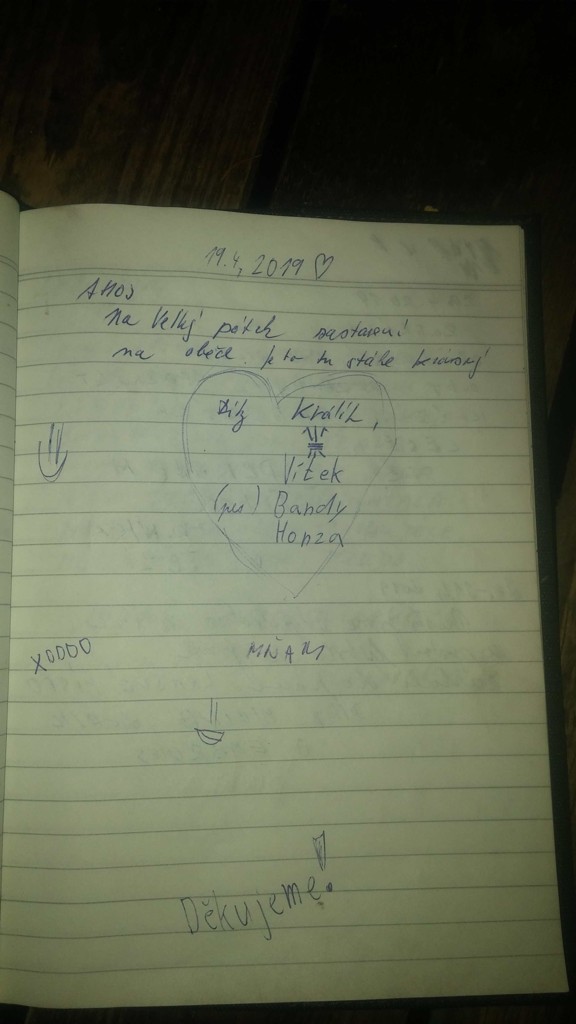 19.4. 2019
AHOJ
Na Velký pátek zastavení
na oběd. je to tu stále
Díky Králík,
Vítek
(pes) Bandy
Honza
XOOOO
MŇAM
Děkujeme!